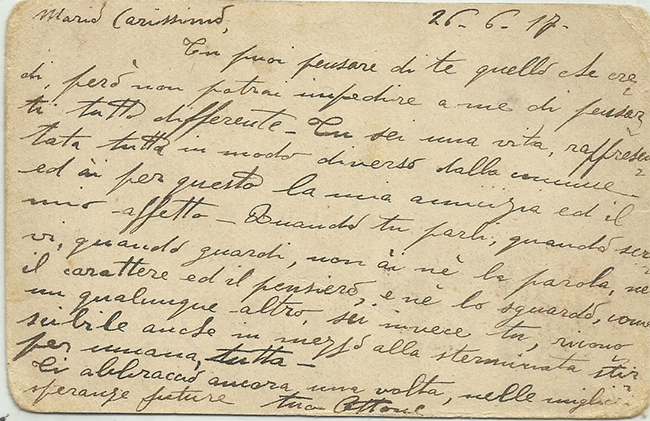 Mario Carissimo, 26-6-17-
Tu puoi pensare di te quello che cre=
di, però non potrai impedire a me di pensar
ti tutto differente - Tu sei una vita, rappresen
tata tutta in modo diverso dalla comune -
ed ài per questo la mia amicizia ed il
mio affetto - Quando tu parli, quando scri
vi, quando guardi, non ài nè la parola, nè
il carattere ed il pensiero, e nè lo sguardo, come
un qualunque altro, sei invece tu, ricono
scibile anche in mezzo alla sterminata stir
pe umana, tutta -
Ti abbraccio ancora una volta, nelle miglio=
speranze future tuo Ettore